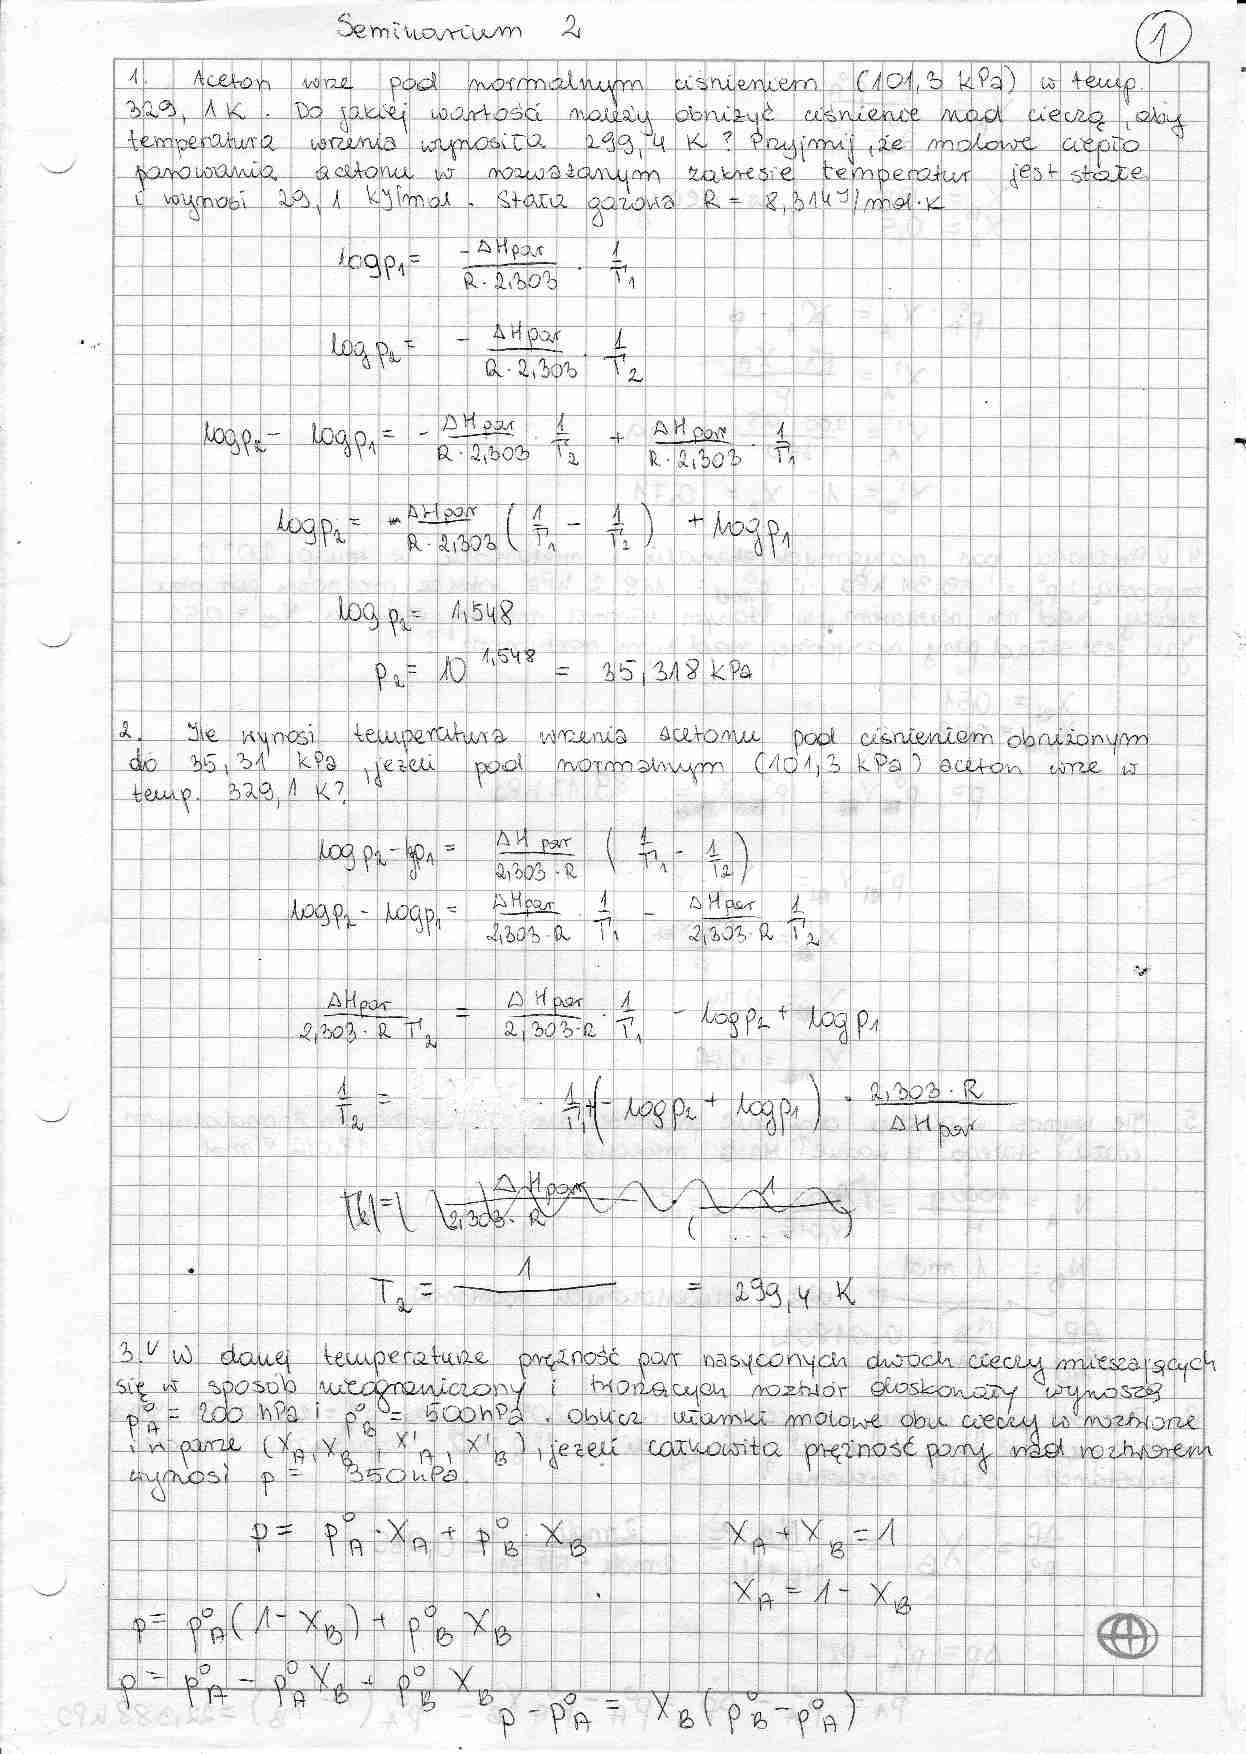 Seminarium 2
1
1. Aceton wrze pod normalnym ciśnieniem (101,3 kPa) w temp.
329,1 K. Do jakiej wartości należy obniżyć ciśnienie nad cieczą, aby
temperatura wrzenia wynosiła 299,4 K? Przyjmij, że molowe ciepło
parowania acetonu w rozważanym zakresie temperatur jest stałe
i wynosi 29,1 kJ/mol. Stała gazowa R = 8,314 J/mol·K
log p₁ = -ΔHpar / R·2,303 · 1/T₁
log p₂ = - ΔHpar / R·2,303 · 1/T₂
log p₂ - log p₁ = - ΔHpar / R·2,303 · 1/T₂ + ΔHpar / R·2,303 · 1/T₁
log p₂ = - ΔHpar / R·2,303 ( 1/T₁ - 1/T₂ ) + log p₁
log p₂ = 1,548
p₂ = 10^1,548 = 35,318 kPa
2. Ile wynosi temperatura wrzenia acetonu pod ciśnieniem obniżonym
do 35,31 kPa, jeżeli pod normalnym (101,3 kPa) aceton wrze w
temp. 329,1 K?
log p₂ - p₁ = ΔHpar / 2,303·R ( 1/T₁ - 1/T₂ )
log p₂ - log p₁ = ΔHpar / 2,303·R · 1/T₁ - ΔHpar / 2,303·R · 1/T₂
ΔHpar / 2,303·R T₂ = ΔHpar / 2,303·R · 1/T₁ - log p₂ + log p₁
1/T₂ = 1/T₁ + (- log p₂ + log p₁) · 2,303·R / ΔHpar
T₂ = 1 / = 299,4 K
3. V W danej temperaturze prężność par nasyconych dwóch cieczy mieszających
się w sposób nieograniczony i tworzących roztwór doskonały wynoszą
p°A = 200 hPa i p°B = 500 hPa. Oblicz ułamki molowe obu cieczy w roztworze
i w parze (XA, XB, X'A, X'B), jeżeli całkowita prężność pary nad roztworem
wynosi p = 350 hPa.
p = p°A · XA + p°B · XB XA + XB = 1
XA = 1 - XB
p = p°A (1 - XB) + p°B XB
p = p°A - p°A XB + p°B XB
p - p°A = XB (p°B - p°A)